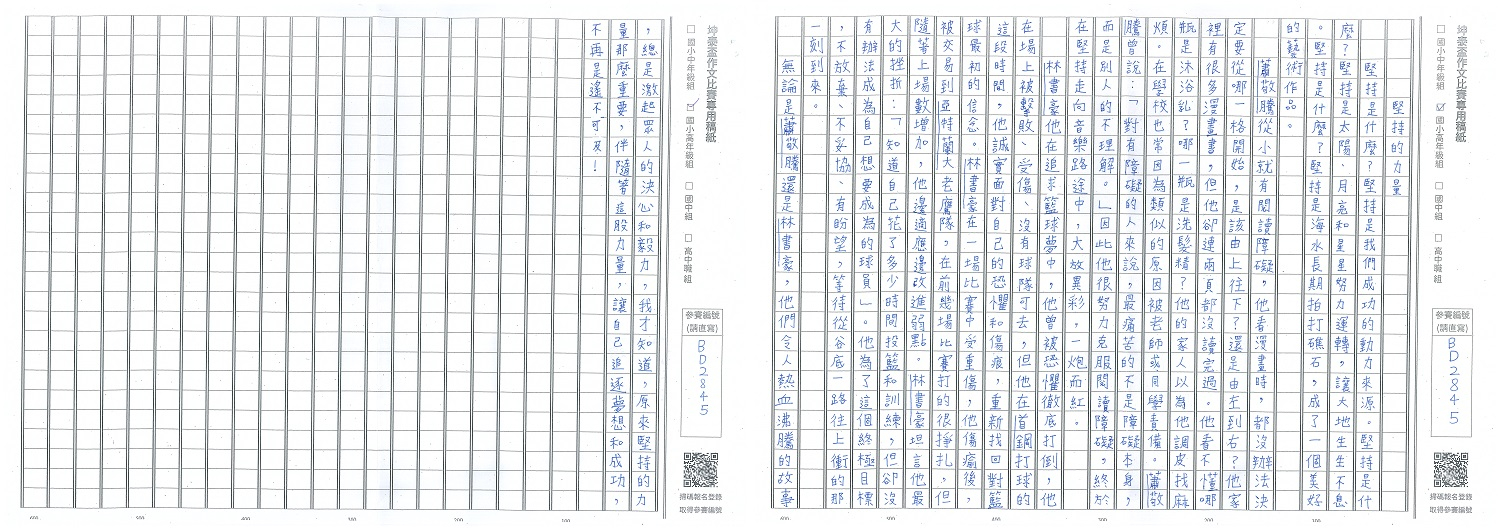 坤泰盃作文比賽專用稿紙
□ 國小中年級組 ☑ 國小高年級組 □ 國中組 □ 高中職組
參賽編號
(請直寫)
BD2845
掃碼報名登錄
取得參賽編號
堅持的力量
堅持是什麼?堅持是我們成功的動力來源。堅持是什
麼?堅持是太陽、月亮和星星努力運轉,讓大地生生不息
。堅持是什麼?堅持是海水長期拍打礁石,成了一個美好
的藝術作品。
蕭敬騰從小就有閱讀障礙,他看漫畫時,都沒辦法決
定要從哪一格開始,是該由上往下?還是由左到右?他家
裡有很多漫畫書,但他卻連兩頁都沒讀完過。他看不懂哪
瓶是沐浴乳?哪一瓶是洗髮精?他的家人以為他調皮找麻
煩。在學校也常因為類似的原因被老師或同學責備。蕭敬
騰曾說:「對有障礙的人來說,最痛苦的不是障礙本身,
而是別人的不理解。」因此他很努力克服閱讀障礙,終於
在堅持走向音樂路途中,大放異彩,一炮而紅。
林書豪他在追求籃球夢中,他曾被恐懼徹底打倒,他
在場上被擊敗、受傷、沒有球隊可去,但他在首鋼打球的
這段時間,他誠實面對自己的恐懼和傷痕,重新找回對籃
球最初的信念。林書豪在一場比賽中受重傷,他傷癒後,
被交易到亞特蘭大老鷹隊,在前幾場比賽打的很掙扎,但
隨著上場數增加,他邊適應邊改進弱點。林書豪坦言他最
大的挫折:「知道自己花了多少時間投籃和訓練,但卻沒
有辦法成為自己想要成為的球員」。他為了這個終極目標
,不放棄、不妥協、有盼望,等待從谷底一路往上衝的那
一刻到來。
無論是蕭敬騰還是林書豪,他們令人熱血沸騰的故事
100
200
300
400
500
600
坤泰盃作文比賽專用稿紙
□ 國小中年級組 ☑ 國小高年級組 □ 國中組 □ 高中職組
參賽編號
(請直寫)
BD2845
掃碼報名登錄
取得參賽編號
,總是激起眾人的決心和毅力,我才知道,原來堅持的力
量那麼重要,伴隨著這股力量,讓自己追逐夢想和成功,
不再是遙不可及!
100
200
300
400
500
600